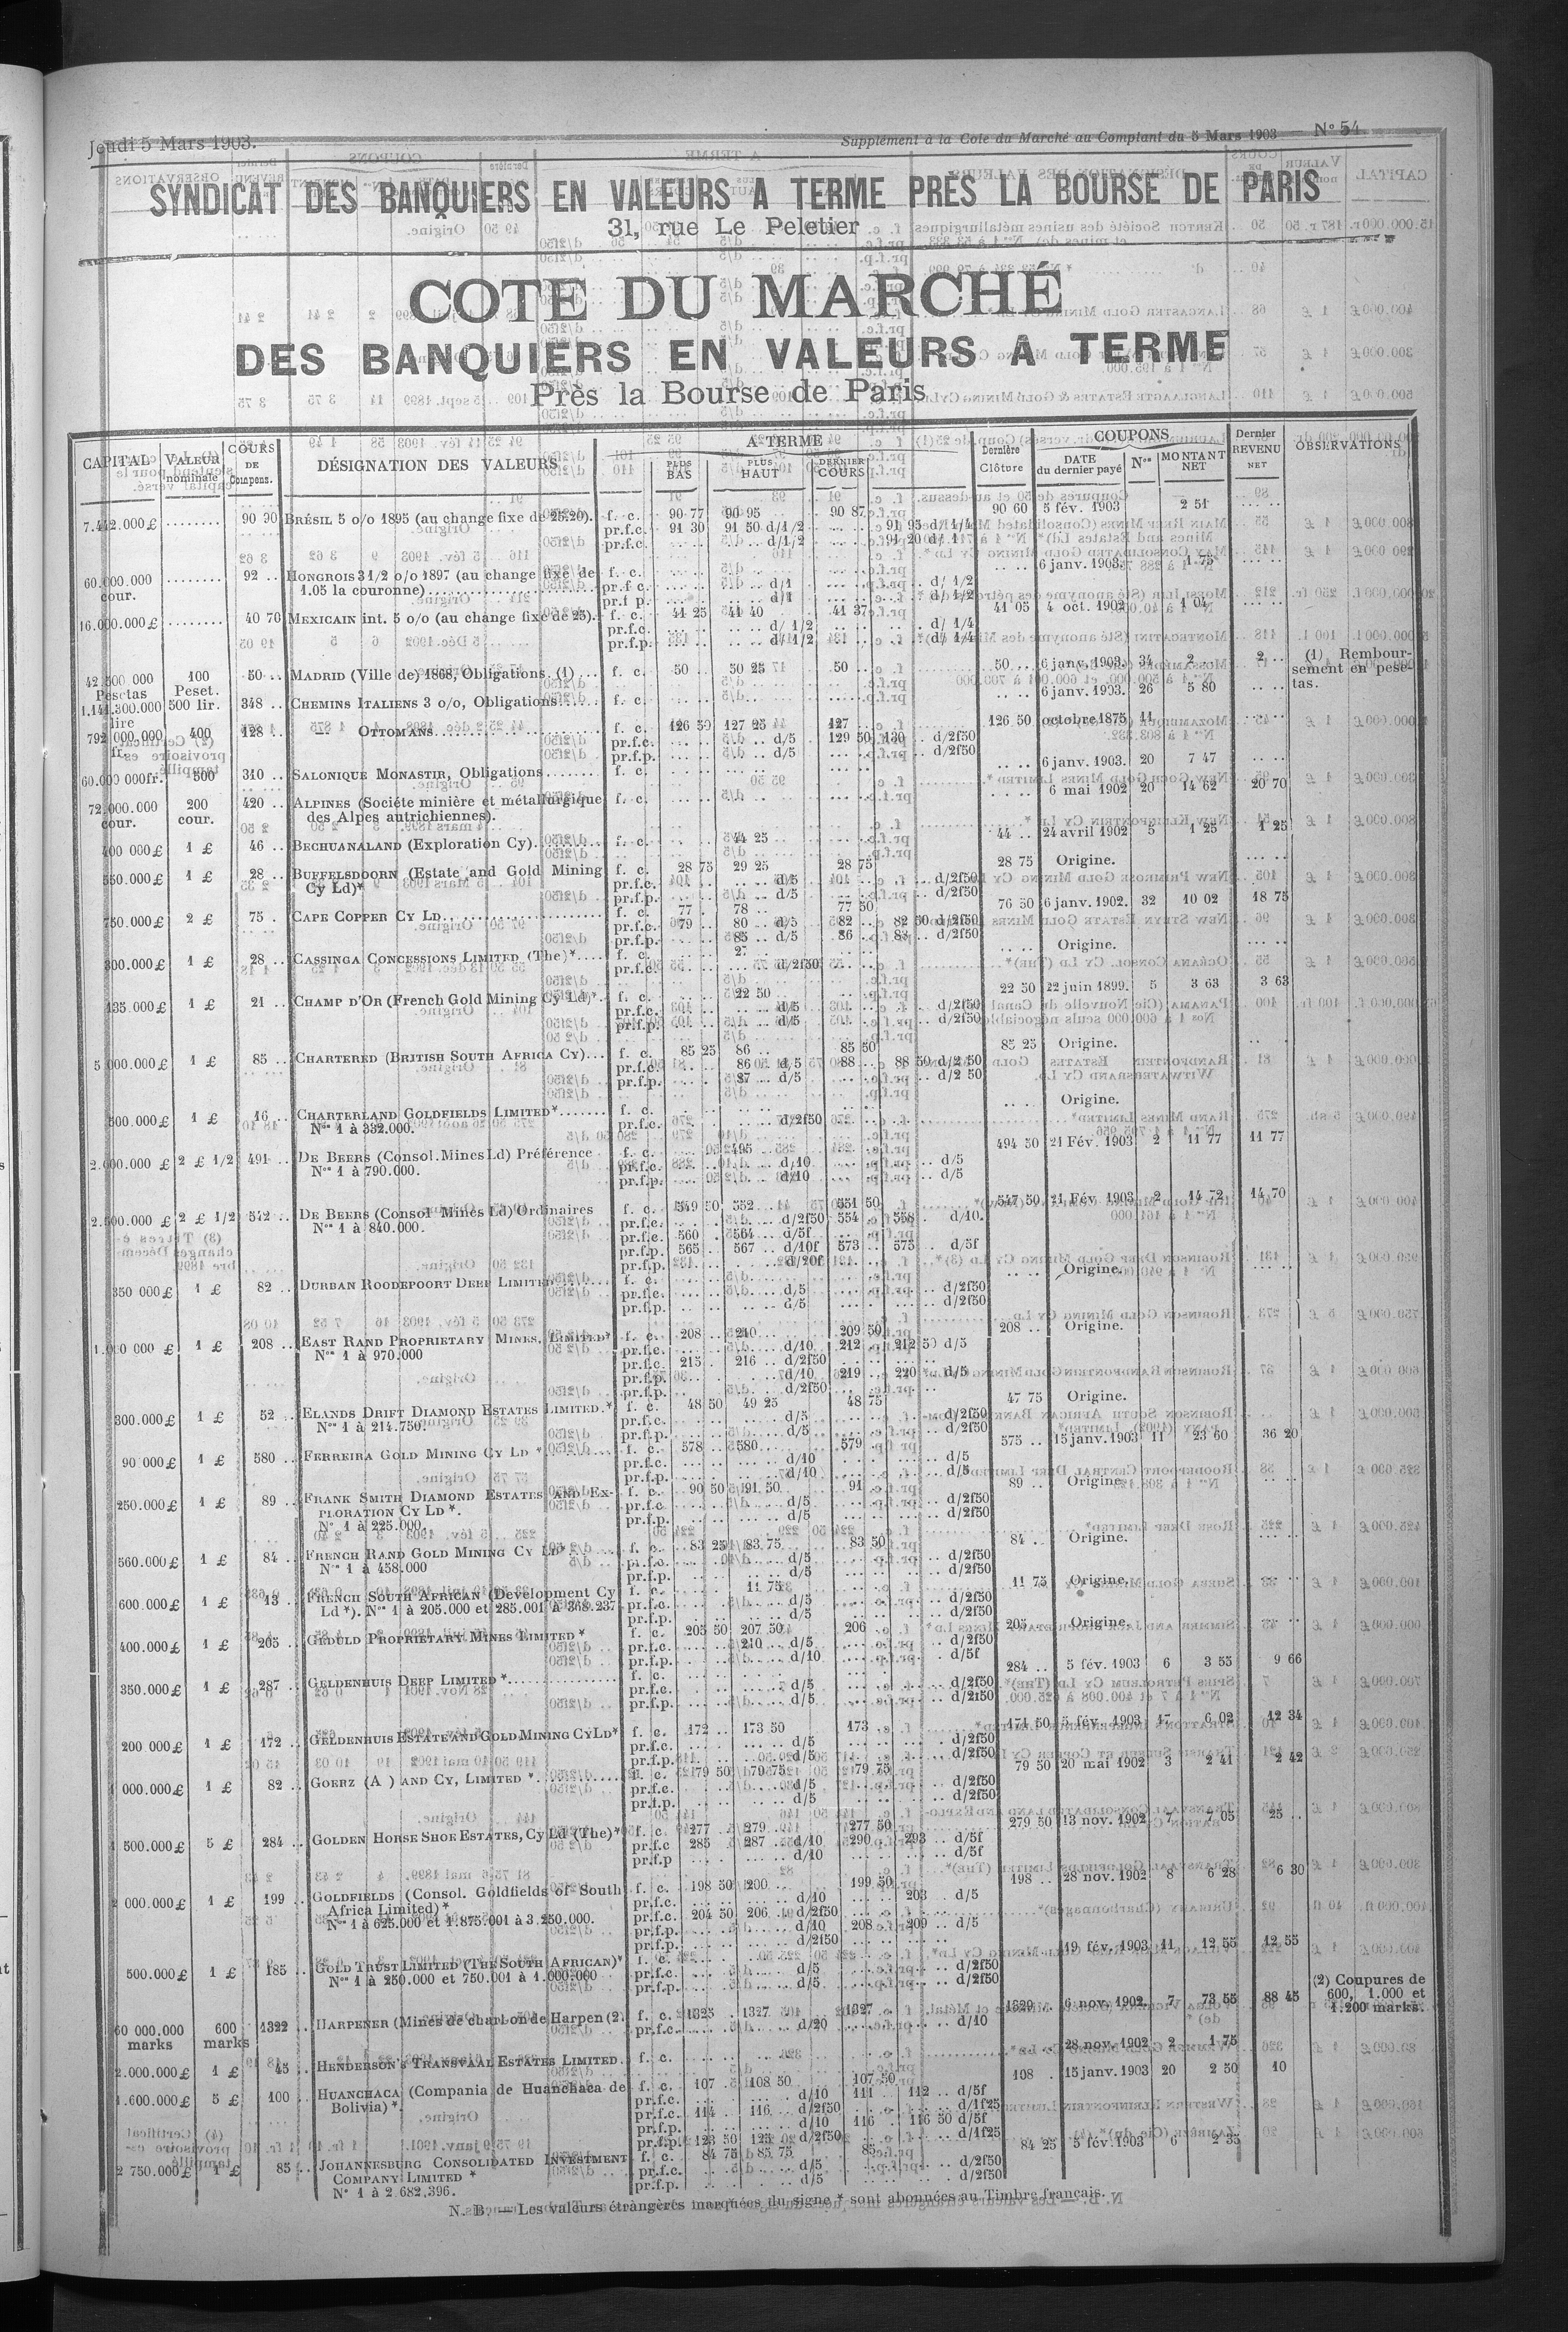 Jeudi 5 Mars 1903.
Supplément à la Cote du Marché au Comptant du 5 Mars 1903 — N° 54
SYNDICAT DES BANQUIERS EN VALEURS A TERME PRÈS LA BOURSE DE PARIS
31, rue Le Peletier
COTE DU MARCHÉ
DES BANQUIERS EN VALEURS A TERME
Près la Bourse de Paris
CAPITAL VALEUR nominale COURS DE Compens. DÉSIGNATION DES VALEURS A TERME PLUS BAS PLUS HAUT DERNIER COURS Dernière Clôture COUPONS DATE du dernier payé Nos MONTANT NET Dernier REVENU NET OBSERVATIONS
7.442.000£ ........ 90 90 BRÉSIL 5 o/o 1895 (au change fixe de 25.20). f. c. 90 77 90 95 90 87 90 60 5 fév. 1903 2 51
pr.f.c. 91 30 91 50 d/1/2 91 95 d/ 1/4
pr.f.p. d/1/2
60.000.000 cour. ........ 92 .. HONGROIS 3 1/2 o/o 1897 (au change fixe de f. c. 6 janv. 1903. 1 75
1.05 la couronne) pr.f.c. d/1 d/ 1/2
pr.f.p. d/1 d/ 1/2
16.000.000£ ........ 40 70 MEXICAIN int. 5 o/o (au change fixe de 25). f. c. 41 25 41 40 41 37 41 05 4 oct. 1902 1 04
pr.f.c. d/ 1/2 d/ 1/4
pr.f.p. d/ 1/2 d/ 1/4
42.500 000 Pesetas 100 Peset. 50 .. MADRID (Ville de) 1868, Obligations. (1) ... f. c. 50 .. 50 25 50 .. 50 .. 6 janv. 1903. 34 2 .. 2 .. (1) Rembour-
sement en pese-
tas.
1.141.300.000 lire 500 lir. 348 .. CHEMINS ITALIENS 3 o/o, Obligations f. c. 6 janv. 1903. 26 5 80
792.000.000 fr. 400 128 .. OTTOMANS f. c. 126 50 127 25 127 .. 126 50 octobre 1875 11
pr.f.c. d/5 129 50 130 .. d/2f50
pr.f.p. d/5 d/2f50
60.000 000fr. 500 310 .. SALONIQUE MONASTIR, Obligations f. c. 6 janv. 1903. 20 7 47
72.000.000 cour. 200 cour. 420 .. ALPINES (Sociéte minière et métallurgique f. c. 6 mai 1902 20 14 62 20 70
des Alpes autrichiennes).
400 000£ 1 £ 46 .. BECHUANALAND (Exploration Cy). f. c. 44 25 44 .. 24 avril 1902 5 1 25 1 25
550.000£ 1 £ 28 .. BUFFELSDOORN (Estate and Gold Mining f. c. 28 75 29 25 28 75 28 75 Origine.
Cy Ld)* pr.f.c. d/5 d/2f50
pr.f.p. d/5 d/2f50
750.000£ 2 £ 75 . CAPE COPPER CY LD. f. c. 77 . 78 .. 77 50 76 50 6 janv. 1902. 32 10 02 18 75
pr.f.c. 79 .. 80 .. d/5 82 .. 82 50 d/2f50
pr.f.p. 85 .. d/5 86 .. 88 .. d/2f50
300.000£ 1 £ 28 .. CASSINGA CONCESSIONS LIMITED (The)* f. c. 27 Origine.
pr.f.c. d/2f50
135.000£ 1 £ 21 .. CHAMP D'OR (French Gold Mining Cy Ld)*. f. c. 22 50 22 50 22 juin 1899. 5 3 63 3 63
pr.f.c. d/5 d/2f50
pr.f.p. d/5 d/2f50
5 000.000£ 1 £ 85 .. CHARTERED (BRITISH SOUTH AFRICA CY) f. c. 85 25 86 .. 85 50 85 25 Origine.
pr.f.c. 86 .. d/5 88 .. 88 50 d/2 50
pr.f.p. 87 .. d/5 d/2 50
500.000£ 1 £ 16 .. CHARTERLAND GOLDFIELDS LIMITED* f. c. Origine.
Nos 1 à 332.000. pr.f.c. d/2f50
2.000.000 £ 2 £ 1/2 491 .. DE BEERS (Consol. Mines Ld) Préférence f. c. 495 494 50 21 Fév. 1903 2 11 77 11 77
Nos 1 à 790.000. pr.f.c. d/10 d/5
pr.f.p. d/10 d/5
2.500.000 £ 2 £ 1/2 542 .. DE BEERS (Consol Mines Ld) Ordinaires f. c. 549 50 552 .. 551 50 547 50 21 Fév. 1903 2 14 72 14 70
Nos 1 à 840.000. pr.f.c. d/2f50 554 .. 558 . d/10.
pr.f.c. 560 . 564 .. d/5f
pr.f.p. 565 .. 567 .. d/10f 573 .. 575 .. d/5f
pr.f.p. d/20f
350 000£ 1 £ 82 .. DURBAN ROODEPOORT DEEP LIMITED f. c. Origine.
pr.f.c. d/5 d/2f50
pr.f.p. d/5 d/2f50
1.000 000 £ 1 £ 208 .. EAST RAND PROPRIETARY MINES, LIMITED* f. c. 208 .. 210 209 50 208 .. Origine.
Nos 1 à 970.000 pr.f.c. d/10 212 .. 212 50 d/5
pr.f.c. 215 . 216 .. d/2f50
pr.f.p. d/10 219 .. 220 .. d/5
pr.f.p. d/2f50
300.000£ 1 £ 52 .. ELANDS DRIFT DIAMOND ESTATES LIMITED.* f. c. 48 50 49 25 48 75 47 75 Origine.
Nos 1 à 214.750. pr.f.c. d/5 d/2f50
pr.f.p. d/5 d/2f50
90 000£ 1 £ 580 .. FERREIRA GOLD MINING CY LD * f. c. 578 .. 580 579 575 .. 15 janv. 1903 11 23 60 36 20
pr.f.c. d/10 d/5
pr.f.p. d/10 d/5
250.000£ 1 £ 89 .. FRANK SMITH DIAMOND ESTATES AND EX- f. c. 90 50 91 50 91 89 .. Origine
PLORATION CY LD *. pr.f.c. d/5 d/2f50
N° 1 à 225.000. pr.f.p. d/5 d/2f50
560.000£ 1 £ 84 .. FRENCH RAND GOLD MINING CY LD f. c. 83 25 83 75 83 50 84 .. Origine.
Nos 1 à 458.000 pr.f.c. d/5 d/2f50
pr.f.p. d/5 d/2f50
600.000£ 1 £ 13 .. FRENCH SOUTH AFRICAN (Development Cy f. c. 11 75 11 75 Origine.
Ld *). Nos 1 à 205.000 et 285.001 à 368.237 pr.f.c. d/5 d/2f50
pr.f.p. d/5 d/2f50
400.000£ 1 £ 205 .. GEDULD PROPRIETARY MINES LIMITED * f. c. 205 50 207 50 206 205 .. Origine.
pr.f.c. 210 .. d/5 d/2f50
pr.f.p. d/10 d/5f
350.000£ 1 £ 287 .. GELDENHUIS DEEP LIMITED * f. c. 284 .. 5 fév. 1903 6 3 55 9 66
pr.f.c. d/5 d/2f50
pr.f.p. d/5 d/2f50
200 000£ 1 £ 172 .. GELDENHUIS ESTATE AND GOLD MINING CY LD* f. c. 172 .. 173 50 173 171 50 5 fév. 1903 17 6 02 12 34
pr.f.c. d/5 d/2f50
pr.f.p. d/5 d/2f50
1 000.000£ 1 £ 82 .. GOERZ (A ) AND CY, LIMITED * f. c. 79 50 79 75 79 75 79 50 20 mai 1902 3 2 41 2 42
pr.f.c. d/5 d/2f50
pr.f.p. d/5 d/2f50
1 500.000£ 5 £ 284 .. GOLDEN HORSE SHOE ESTATES, Cy Ld (The)* f. c. 277 .. 279 .. 277 50 279 50 13 nov. 1902 7 7 05 25 ..
pr.f.c 285 287 .. d/10 290 293 .. d/5f
pr.f.p d/10 d/5f
2 000.000£ 1 £ 199 .. GOLDFIELDS (Consol. Goldfields of South f. c. 198 50 200 199 50 198 .. 28 nov. 1902 8 6 28 6 30
Africa Limited) * pr.f.c. d/10 203 .. d/5
Nos 1 à 625.000 et 1.875.001 à 3.250.000. pr.f.c. 204 50 206 .. d/2f50
pr.f.p. d/10 208 209 .. d/5
pr.f.p. d/2f50
500.000£ 1 £ 185 .. GOLD TRUST LIMITED (THE SOUTH AFRICAN)* f. c. 19 fév. 1903 11 12 55 12 55
Nos 1 à 250.000 et 750.001 à 1.000.000 pr.f.c. d/5 d/2f50
pr.f.p. d/5 d/2f50
60 000.000 marks 600 marks 1322 HARPENER (Mines de charbon de Harpen (2. f. c. 1325 1327 1327 1329 .. 6 nov. 1902 7 73 55 88 45 (2) Coupures de
600, 1.000 et
1.200 marks.
pr.f.c. d/20 d/10
2.000.000£ 1 £ 45 HENDERSON'S TRANSVAAL ESTATES LIMITED. f. c. 28 nov. 1902 2 1 75
1.600.000£ 5 £ 100 HUANCHACA (Compania de Huanchaca de f. c. 107 . 108 50 107 50 108 . 15 janv. 1903 20 2 50 10
Bolivia) * pr.f.c. d/10 111 .. 112 .. d/5f
pr.f.c. 114 . 116 .. d/2f50 d/1f25
pr.f.p. d/10 116 116 50 d/5f
pr.f.p. 123 50 125 d/2f50 d/1f25
2 750.000£ 1 £ 85 .. JOHANNESBURG CONSOLIDATED INVESTMENT f. c. 84 75 85 75 85 84 25 5 fév. 1903 6 2 35
COMPANY LIMITED * pr.f.c. d/5 d/2f50
N° 1 à 2.682.396. pr.f.p. d/5 d/2f50
N. B. — Les valeurs étrangères marquées du signe * sont abonnées au Timbre français.